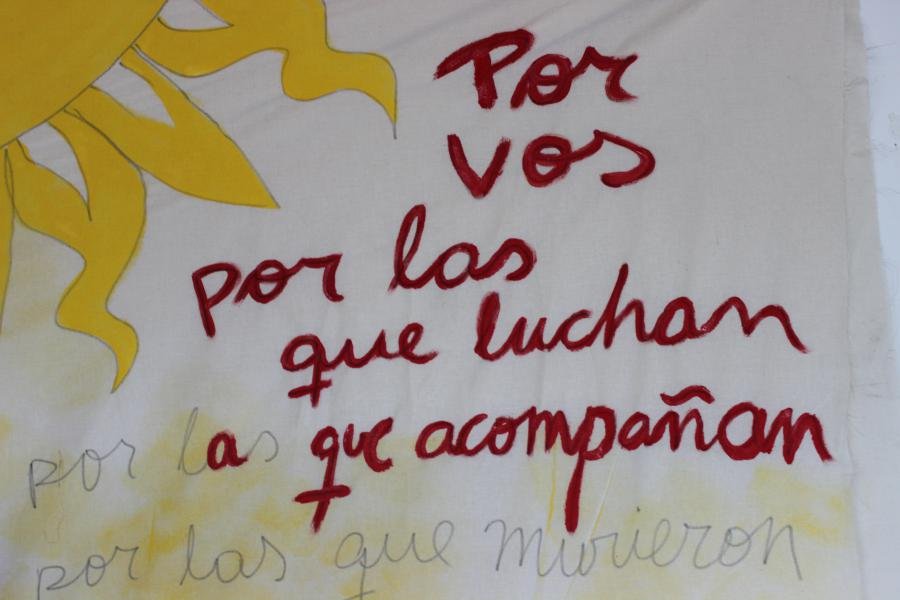 Por
vos
por las
que luchan
por las que acompañan
por las que murieron